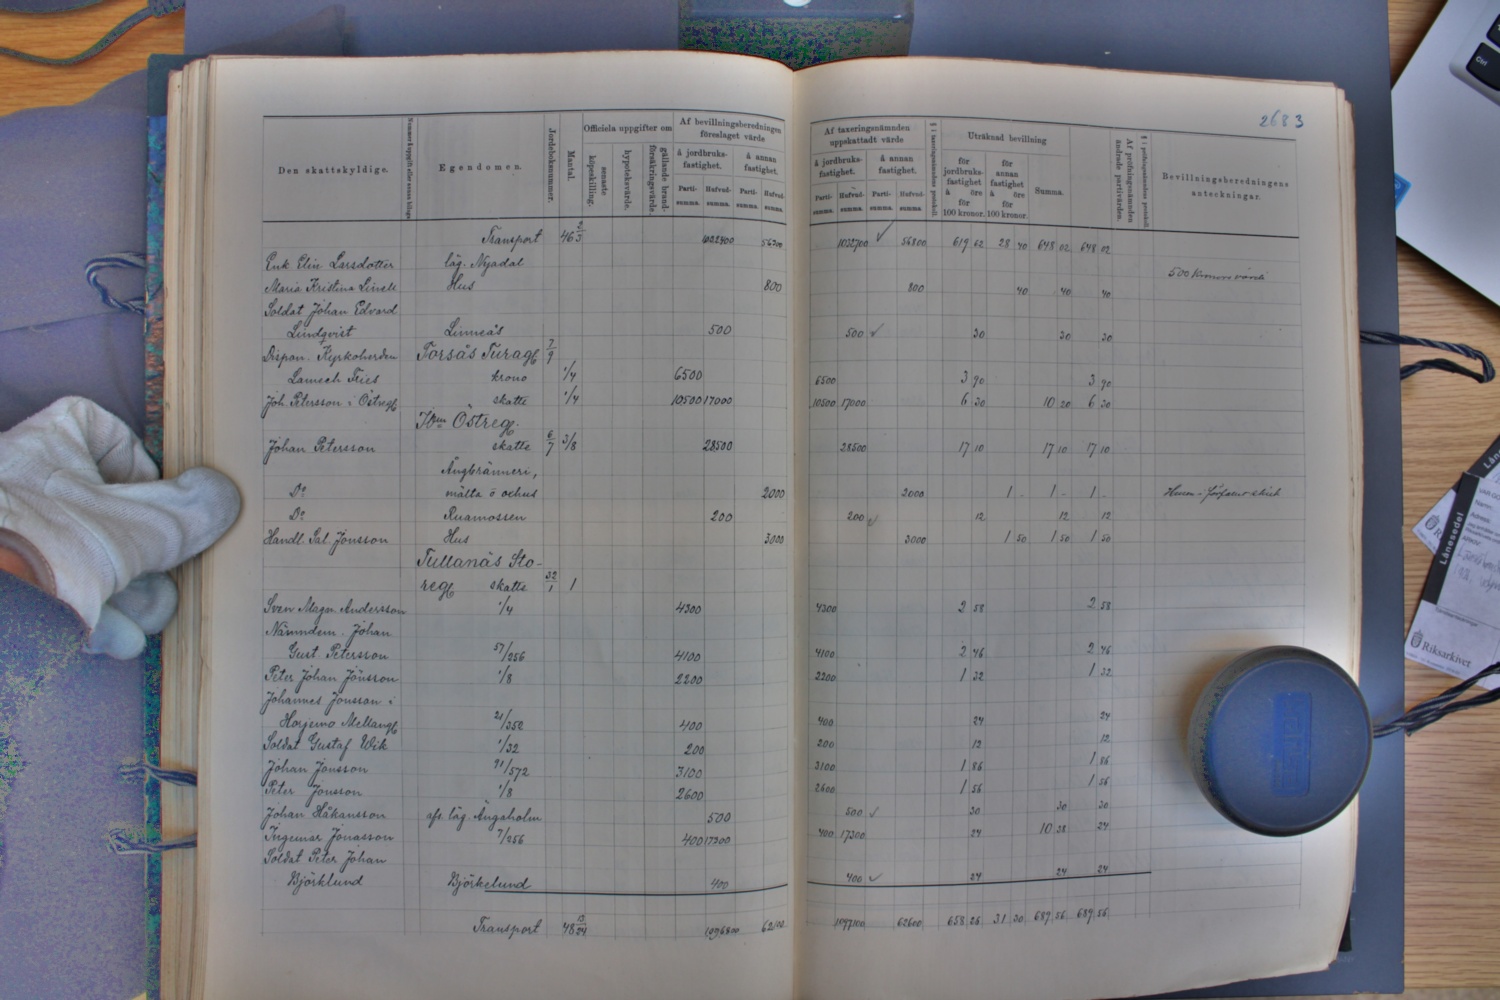 2683
Den skattskyldige.
Egendomen.
Jordeboksnummer.
Mantal.
Officiela uppgifter om
senaste köpeskilling.
hypoteksvärde.
gällande brand-försäkringsvärde.
Af bevillningsberedningen föreslaget värde
å jordbruks-fastighet.
å annan fastighet.
Parti-summa.
Hufvud-summa.
Parti-summa.
Hufvud-summa.
Af taxeringsnämnden uppskattadt värde
å jordbruks-fastighet.
å annan fastighet.
Parti-summa.
Hufvud-summa.
Parti-summa.
Hufvud-summa.
Uträknad bevillning
för jordbruks-fastighet å öre för 100 kronor.
för annan fastighet å öre för 100 kronor.
Summa.
Af pröfningsnämnden ändrade partivärden.
Bevillningsberedningens anteckningar.
Transport 46 1032700 56800 619 62 28 40 648 02 648 02
Enk Elin Larsdotter läg. Nyadal
Maria Kristina Linell Hus 800 800 40 40 40
Soldat Johan Edvard
Lindqvist Linneås 500 500 30 30 30
Dispon. Kyrkoherden Torsås Turag 7/9
Lamech Fries krono 1/4 6500 6500 3 90 3 90
Joh. Petersson i Östreg skatte 1/4 10500 17000 10500 17000 6 30 10 20 6 30
Östreg.
Johan Petersson skatte 6/7 3/8 28500 28500 17 10 17 10 17 10
Ångbränneri,
Do mälta o oxhus 2000 2000 1 - 1 - 1 -
Do Ruamossen 200 200 12 12 12
Handl. Jonsson Hus 3000 3000 1 50 1 50 1 50
Tullanäs Sto-
reg skatte 32/1 1
Sven Magn. Andersson 1/4 4300 4300 2 58 2 58
Nämndem. Johan
Gust. Petersson 57/256 4100 4100 2 46 2 46
Peter Johan Jönsson 1/8 2200 2200 1 32 1 32
Johannes Jonsson i
Mellang 21/352 400 400 24 24
Soldat Gustaf Wik 1/32 200 200 12 12
Johan Jonsson 91/572 3100 3100 1 86 1 86
Peter Jonsson 1/8 2600 2600 1 56 1 56
Johan Håkansson afs. läg. Ängsholm 500 500 30 30 30
Ingemar Jonasson 7/256 400 17300 400 17300 24 10 38 24
Soldat Peter Johan
Björklund Björkelund 400 400 24 24 24
Transport 48 13/24 1096800 62100 1097100 62600 658 26 31 30 689 56 689 56
500 kronors värde
Ctrl
Lånesedel
Namn:
Riksarkivet
Riksarkivet